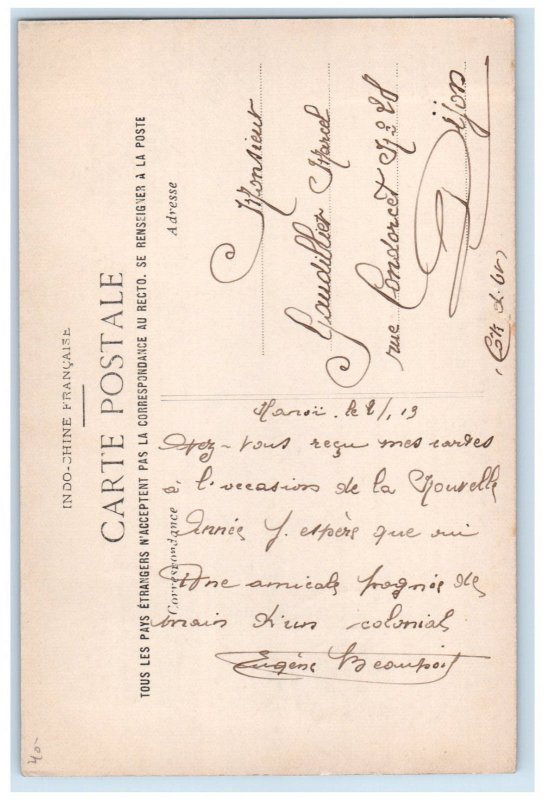 INDO-CHINE FRANÇAISE
CARTE POSTALE
TOUS LES PAYS ÉTRANGERS N'ACCEPTENT PAS LA CORRESPONDANCE AU RECTO. SE RENSEIGNER À LA POSTE
Correspondance
Adresse
Monsieur
Gaudillier Marcel
rue Condorcet No 28
Dijon
Hanoï. le
avez-vous reçu mes cartes
à l'occasion de la Nouvelle
Année J. espère que oui
Une amicale pognée de
main d'un colonial
Eugène Beaupoit
40-